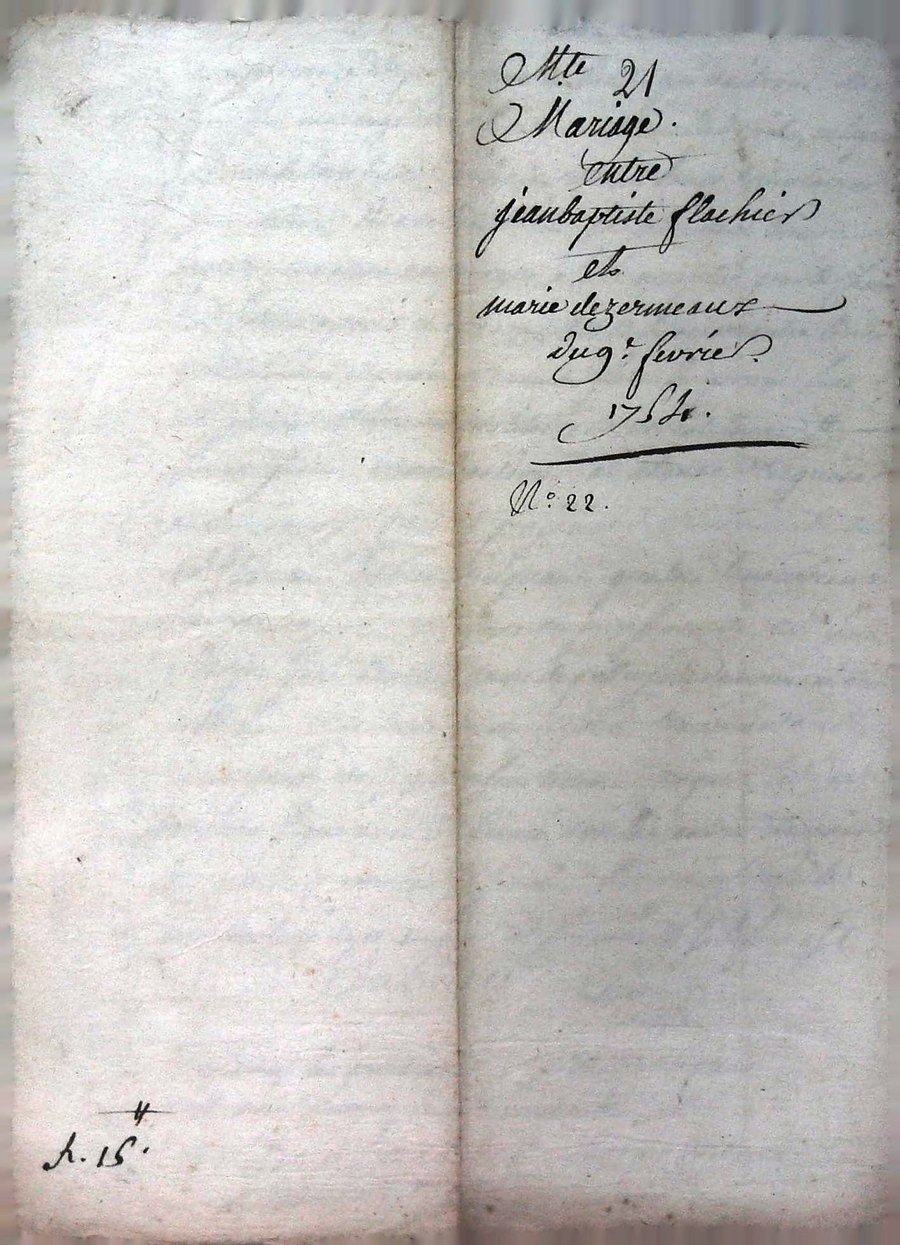 Mte 21
Mariage.
entre
jeanbaptiste flachier
et
marie dezermeaux
du 9e. fevrier.
1754.
No: 22.
15.